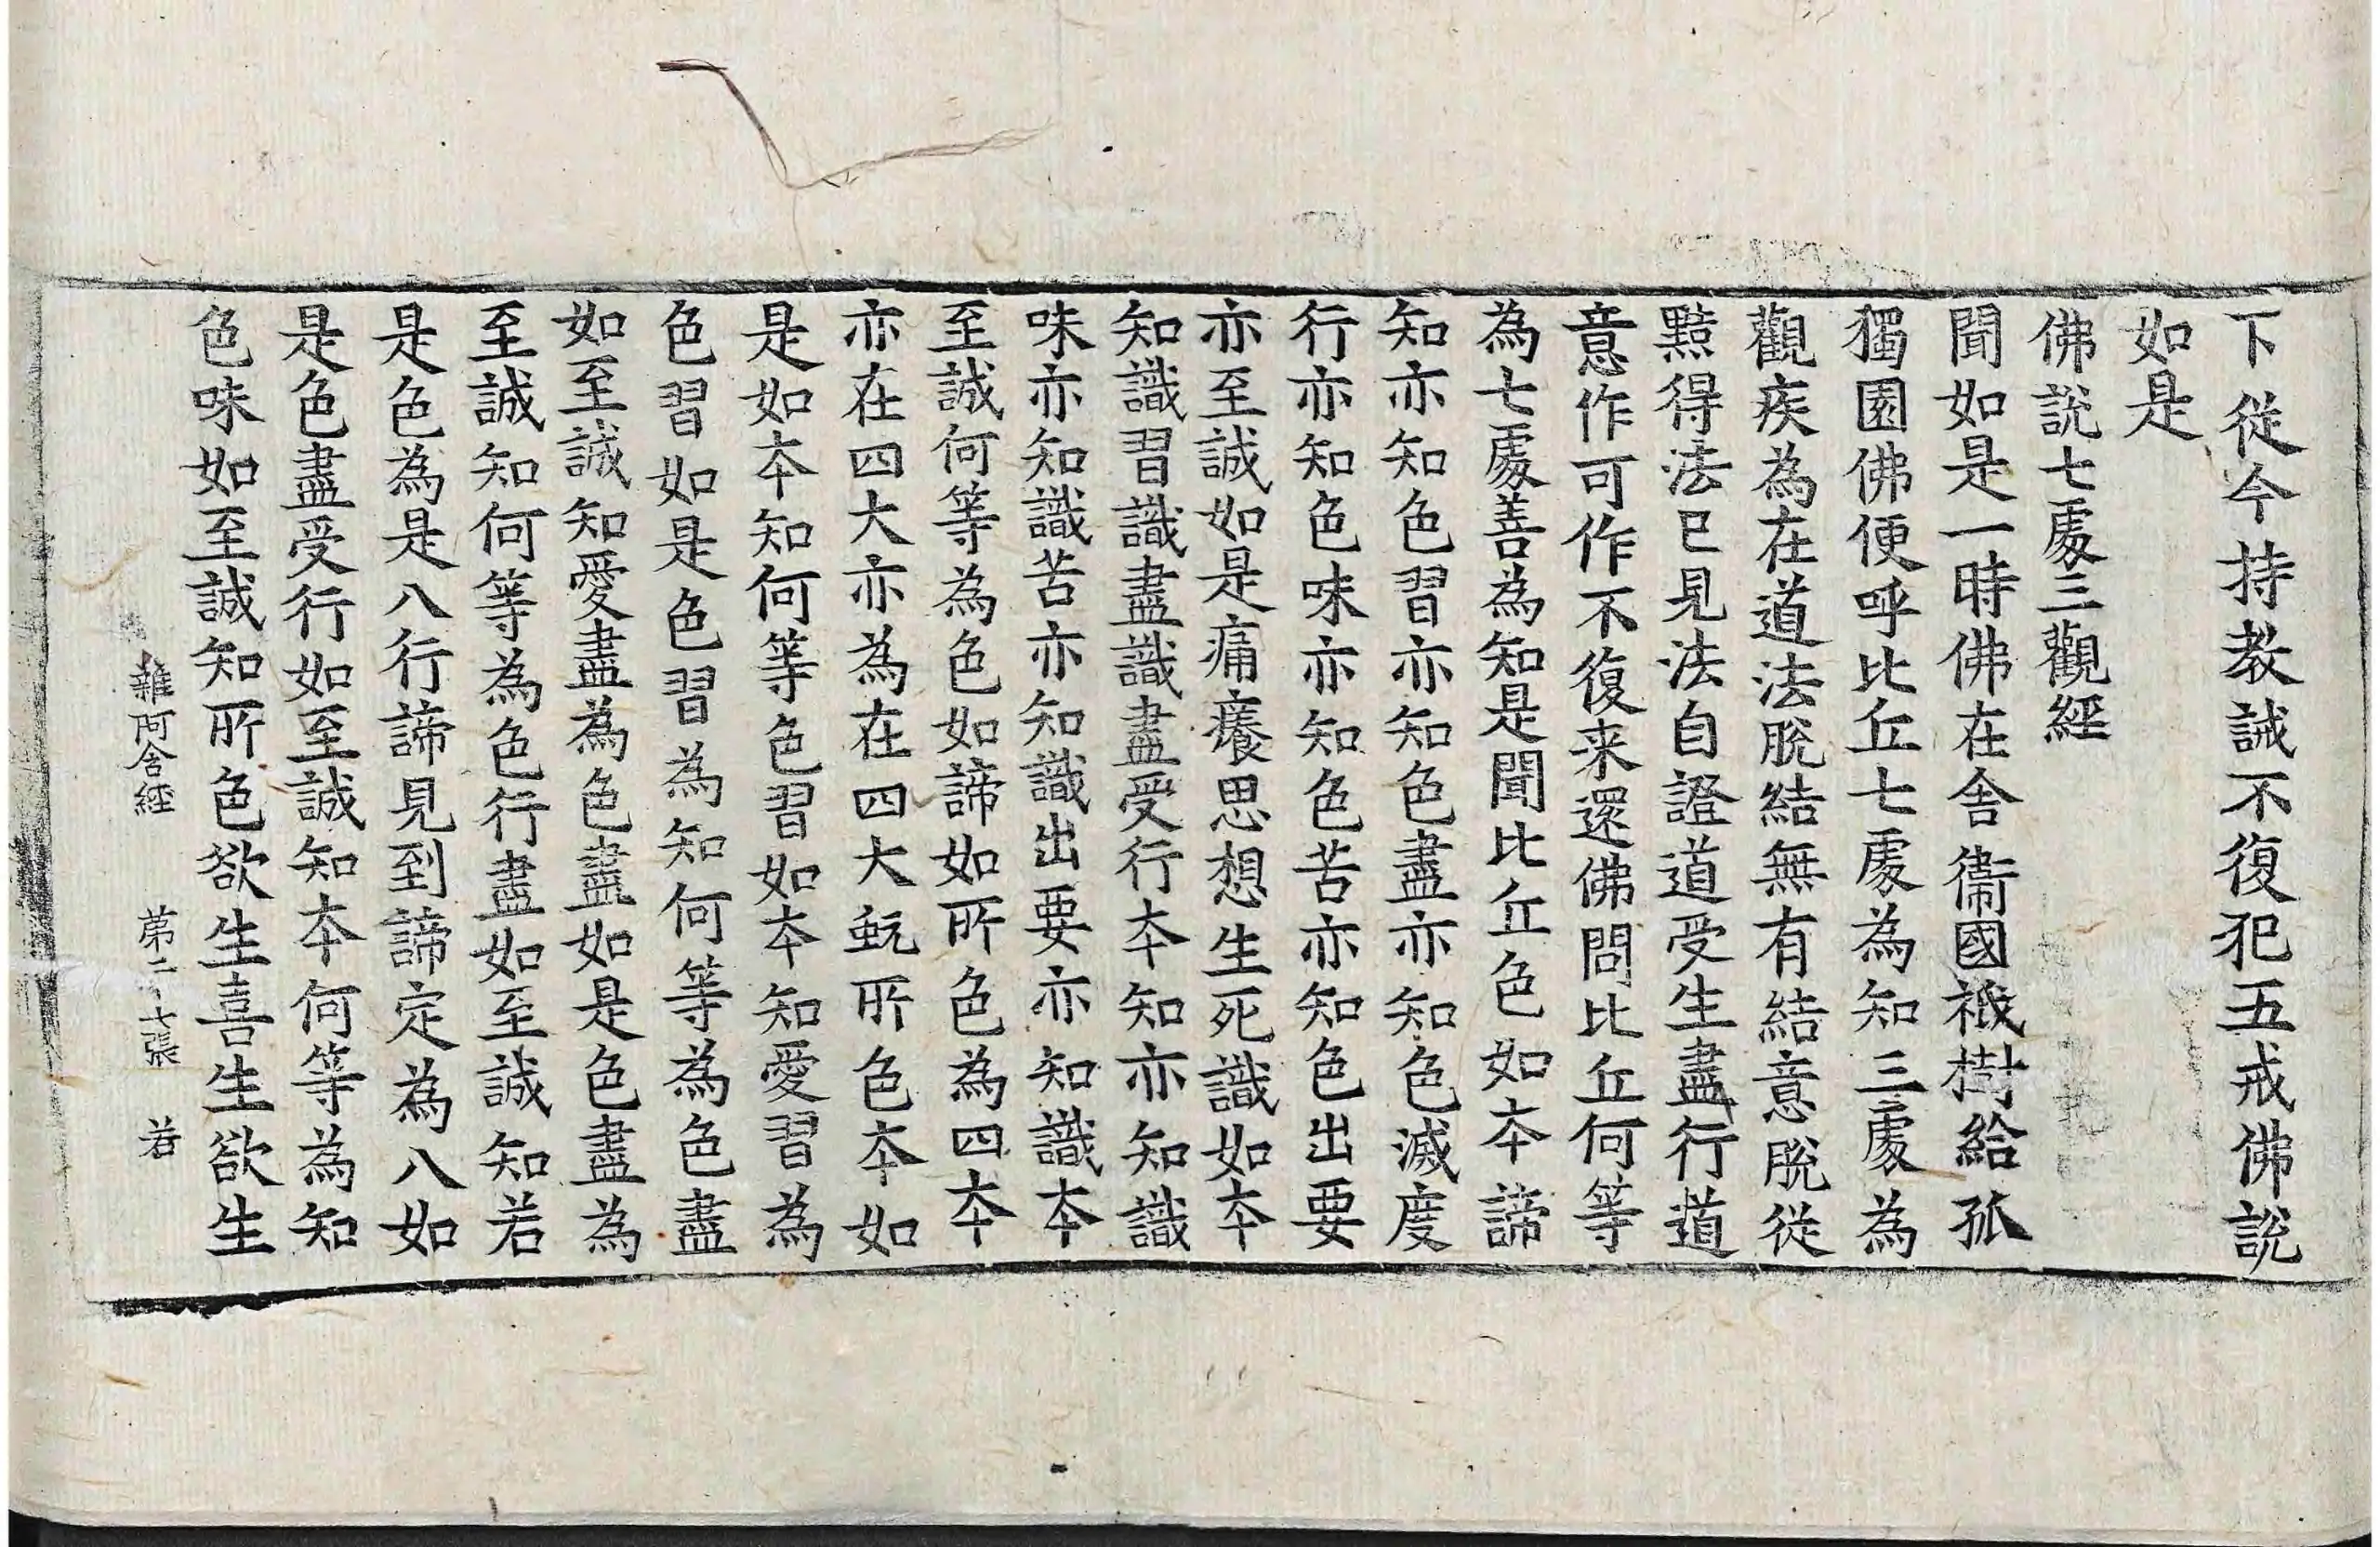 下從今持教誡不復犯五戒佛說
如是
佛說七處三觀經
聞如是一時佛在舍衞國祇樹給孤
獨園佛便呼比丘七處為知三處為
觀疾為在道法脫結無有結意脫從
黠得法已見法自證道受生盡行道
意作可作不復来還佛問比丘何等
為七處善為知是聞比丘色如夲諦
知亦知色習亦知色盡亦知色滅度
行亦知色味亦知色苦亦知色出要
亦至誠如是痛癢思想生死識如夲
知識習識盡識盡受行夲知亦知識
味亦知識苦亦知識出要亦知識夲
至誠何等為色如諦如所色為四夲
亦在四大亦為在四大蚖所色夲如
是如夲知何等色習如夲知愛習為
色習如是色習為知何等為色盡
如至誠知愛盡為色盡如是色盡為
至誠知何等為色行盡如至誠知若
是色為是八行諦見到諦定為八如
是色盡受行如至誠知夲何等為知
色味如至誠知所色欲生喜生欲生
雜阿含經 苐二十七張 若